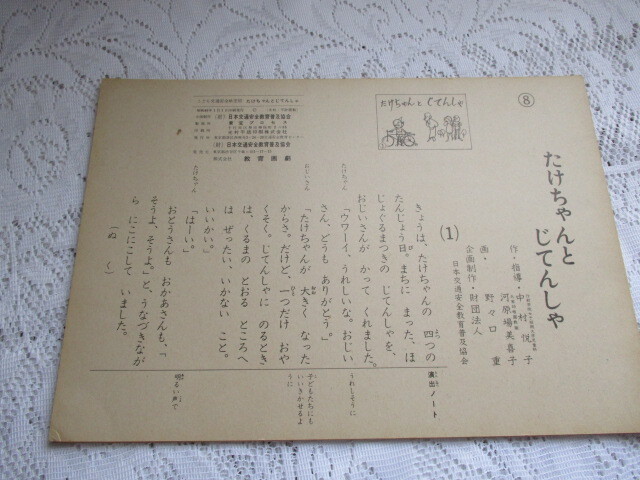 ⑧
たけちゃんと
じてんしゃ
作・指導・中村悦子
河原場美喜子
画・野々口重
企画制作・財団法人
日本交通安全教育普及協会
たけちゃんと じてんしゃ
(1)
きょうは、たけちゃんの 四つの
たんじょう日。まちに まった、ほ
じょぐるまつきの じてんしゃを、
おじいさんが かって くれました。
たけちゃん
「ウワーイ、うれしいな。おじい
さん、どうも ありがとう。」
おじいさん
「たけちゃんが 大きく なった
からさ。だけど、一つだけ おや
くそく。じてんしゃに のるとき
は、くるまの とおる ところへ
は ぜったい、いかない こと。
いいかい。」
たけちゃん
「はーい。」
おとうさんも おかあさんも、「
そうよ、そうよ。」と、うなづきなが
ら にこにこして いました。
(ぬく)
演出ノート
うれしそうに
子どもたちにも
いいきかせるよ
うに
明るい声で
(財)日本交通安全教育普及協会
(財)日本交通安全教育普及協会
株式会社 教育画劇